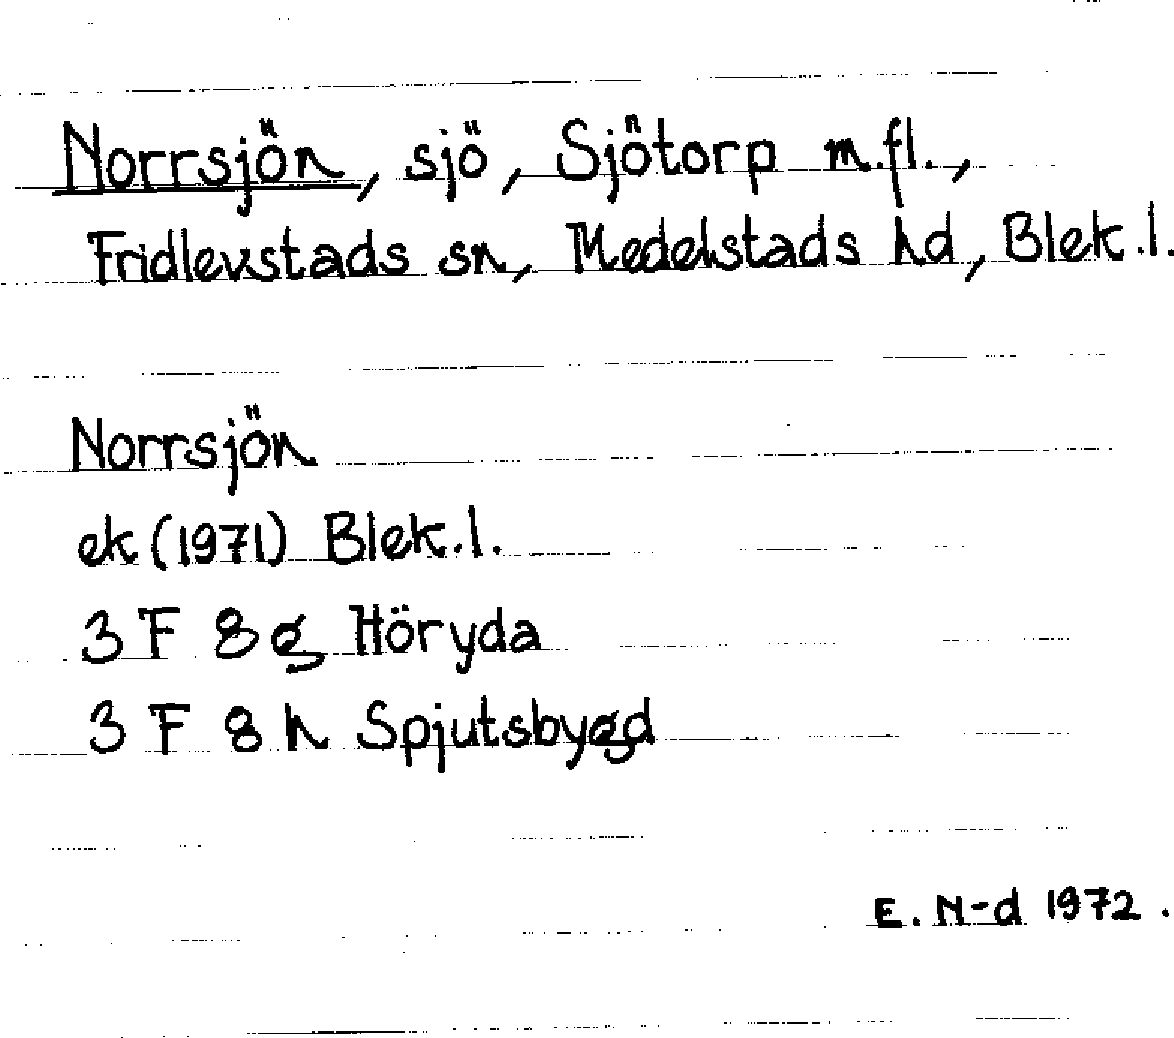 Norrsjön, sjö, Sjötorp m.fl.,
Fridlevstads sn, Medelstads hd, Blek.l.
Norrsjön
ek (1971) Blek.l.
3 F 8 g Höryda
3 F 8 h Spjutsbygd
E. N-d 1972.